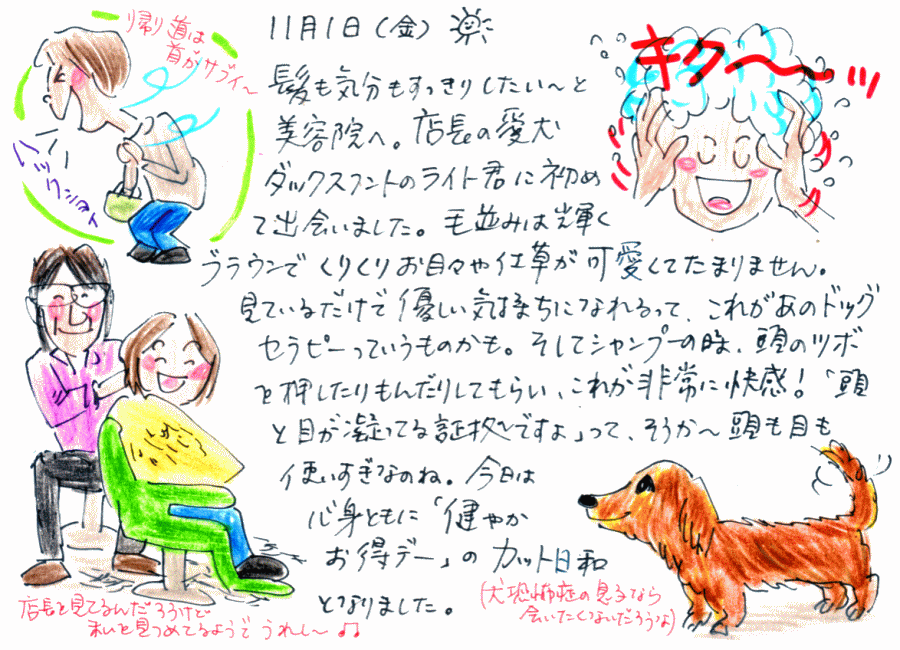 11月1日(金)
髪も気分もすっきりしたい〜と
美容院へ。店長の愛犬
ダックスフントのライト君に初め
て出会いました。毛並みは輝く
ブラウンでくりくりお目々や仕草が可愛くてたまりません。
見ているだけで優しい気持ちになれるって、これがあのドッグ
セラピーっていうものかも。そしてシャンプーの時、頭のツボ
を押したりもんだりしてもらい、これが非常に快感!「頭
と目が凝ってる証拠ですよ」って、そうか〜頭も目も
使いすぎなのね。今日は
心身ともに「健やか
お得デー」のカット日和
となりました。
帰り道は
首がサブイ〜
ハ、ハ
ハックショイ
キク〜〜ッ
店長を見てるんだろうけど
私を見つめてるようでうれし〜♫
(犬恐怖症の息子なら
会いたくないだろうな)